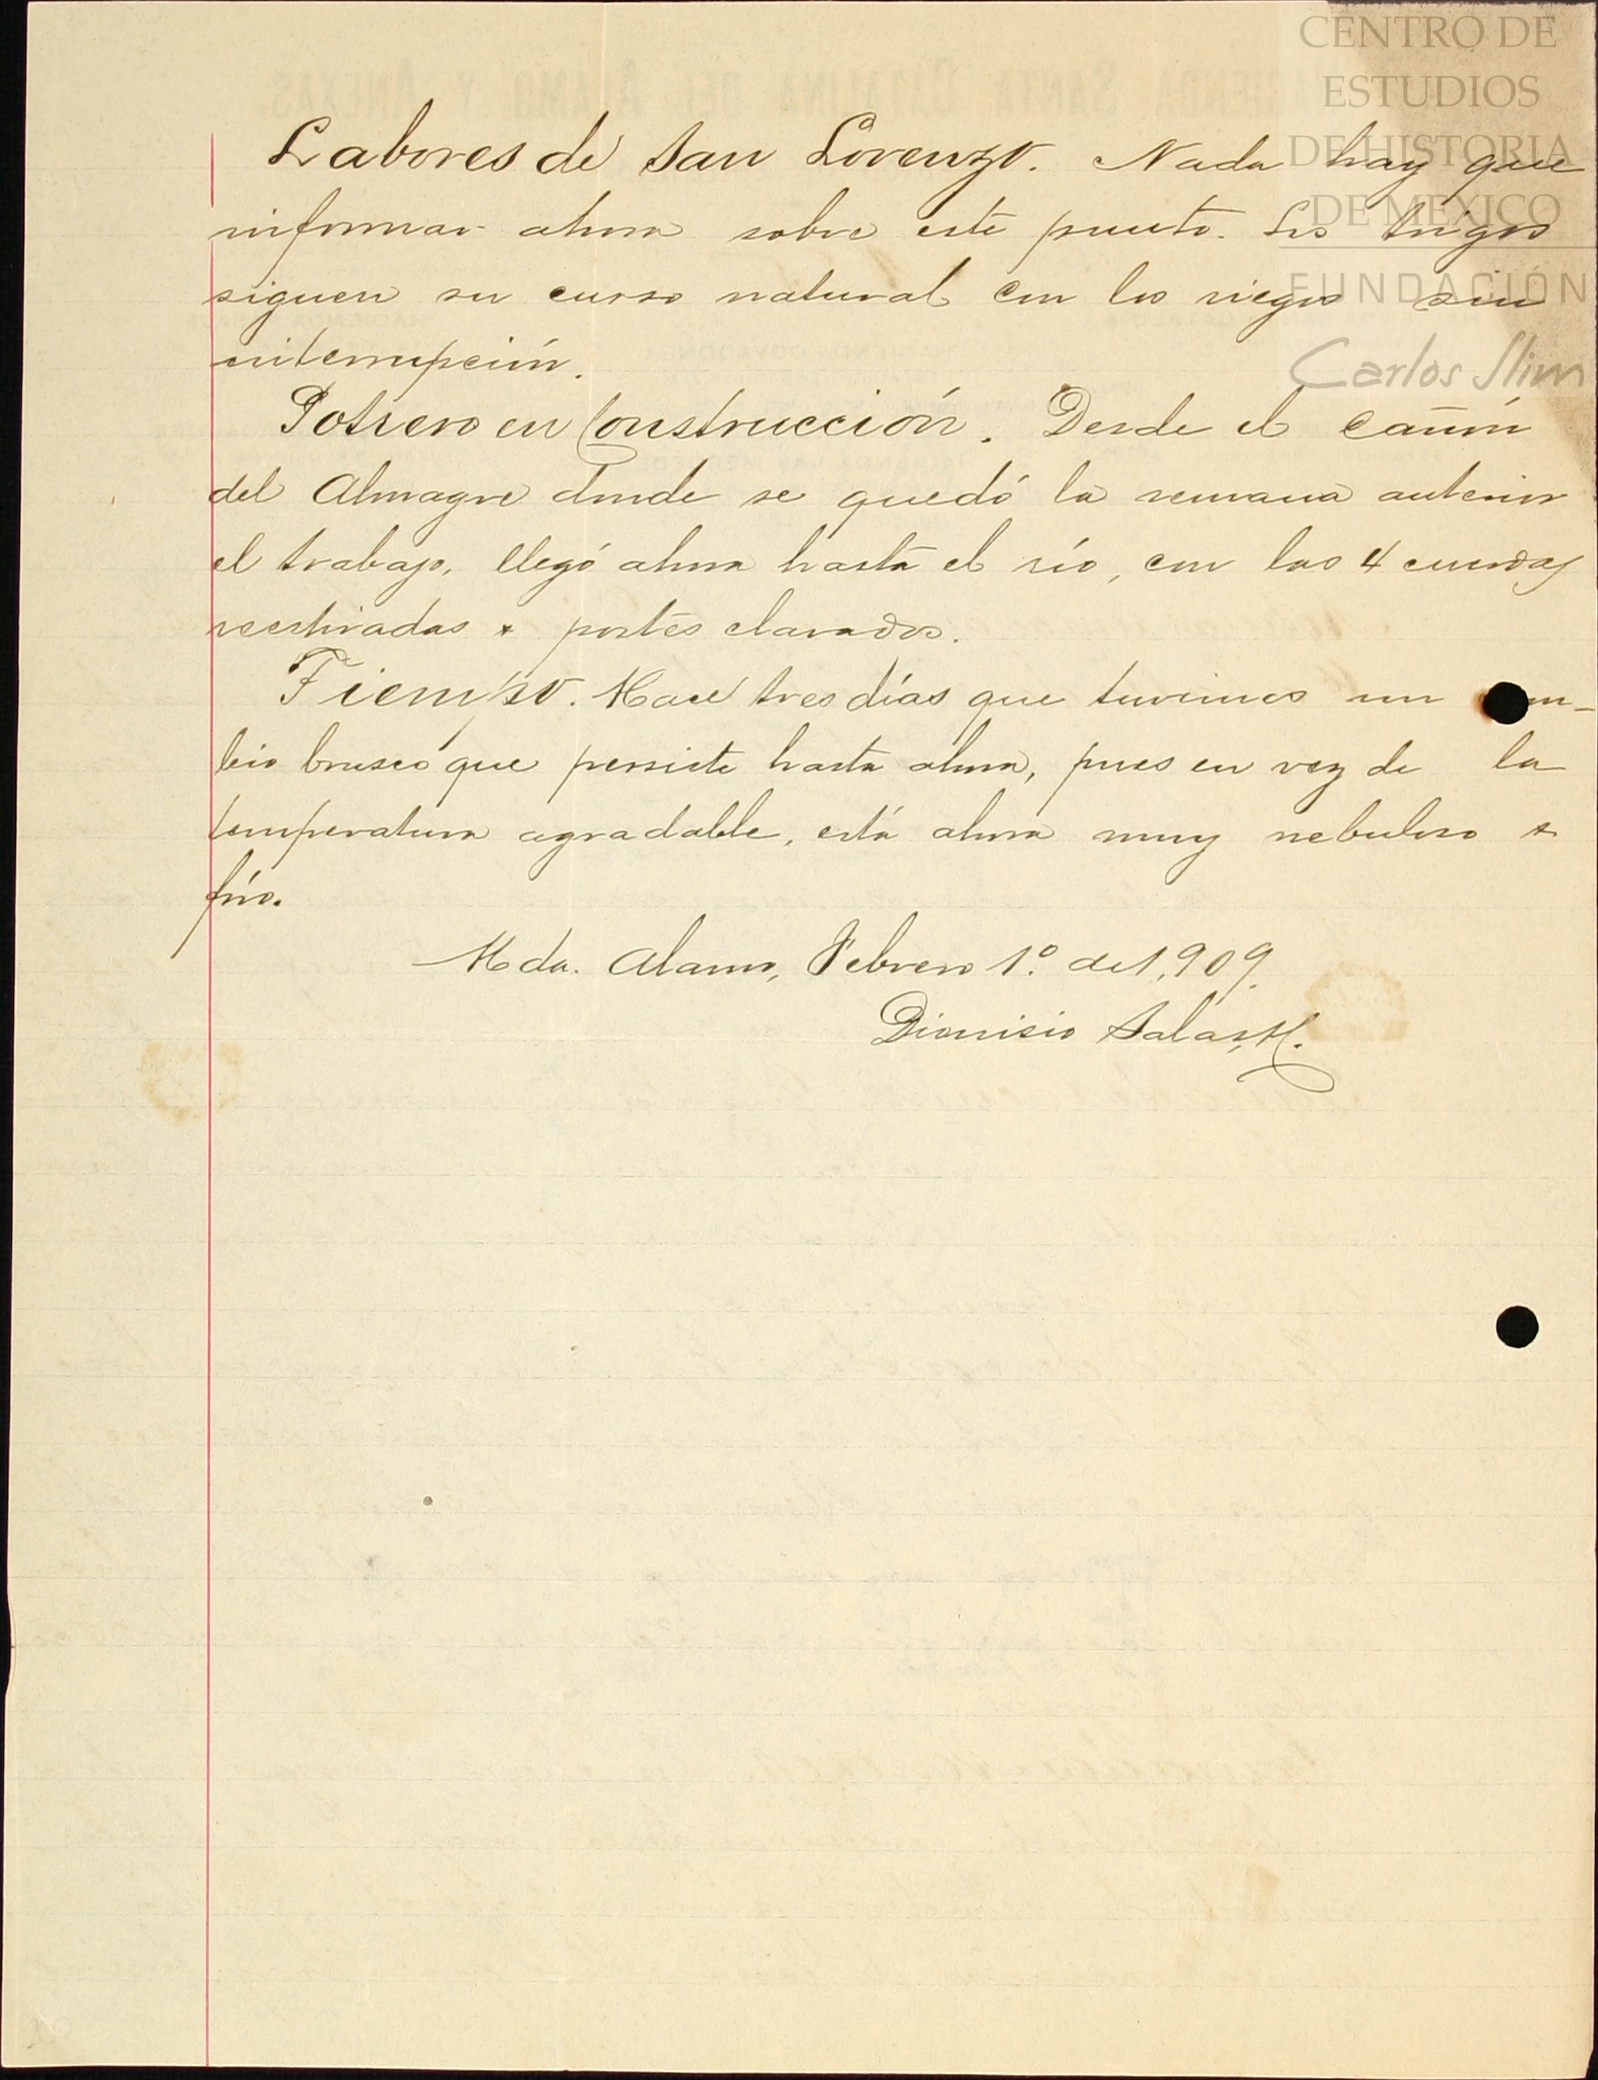 CENTRO DE
ESTUDIOS
DE HISTORIA
DE MÉXICO
FUNDACIÓN
Carlos Slim
Labores de San Lorenzo. Nada hay que
informar ahora sobre este punto. Los trigos
siguen su curso natural con los riegos sin
interrupción.
Potrero en Construcción. Desde el cañón
del Almagre donde se quedó la semana anterior
el trabajo, llegó ahora hasta el río, con las 4 cuerdas
restiradas & postes clavados.
Tiempo. Hace tres días que tuvimos un m-
bio brusco que persiste hasta ahora, pues en vez de la
temperatura agradable, está ahora muy nebuloso &
frío.
Hda. Alamo, Febrero 1º. de 1,909.
Dionisio Salas, H.